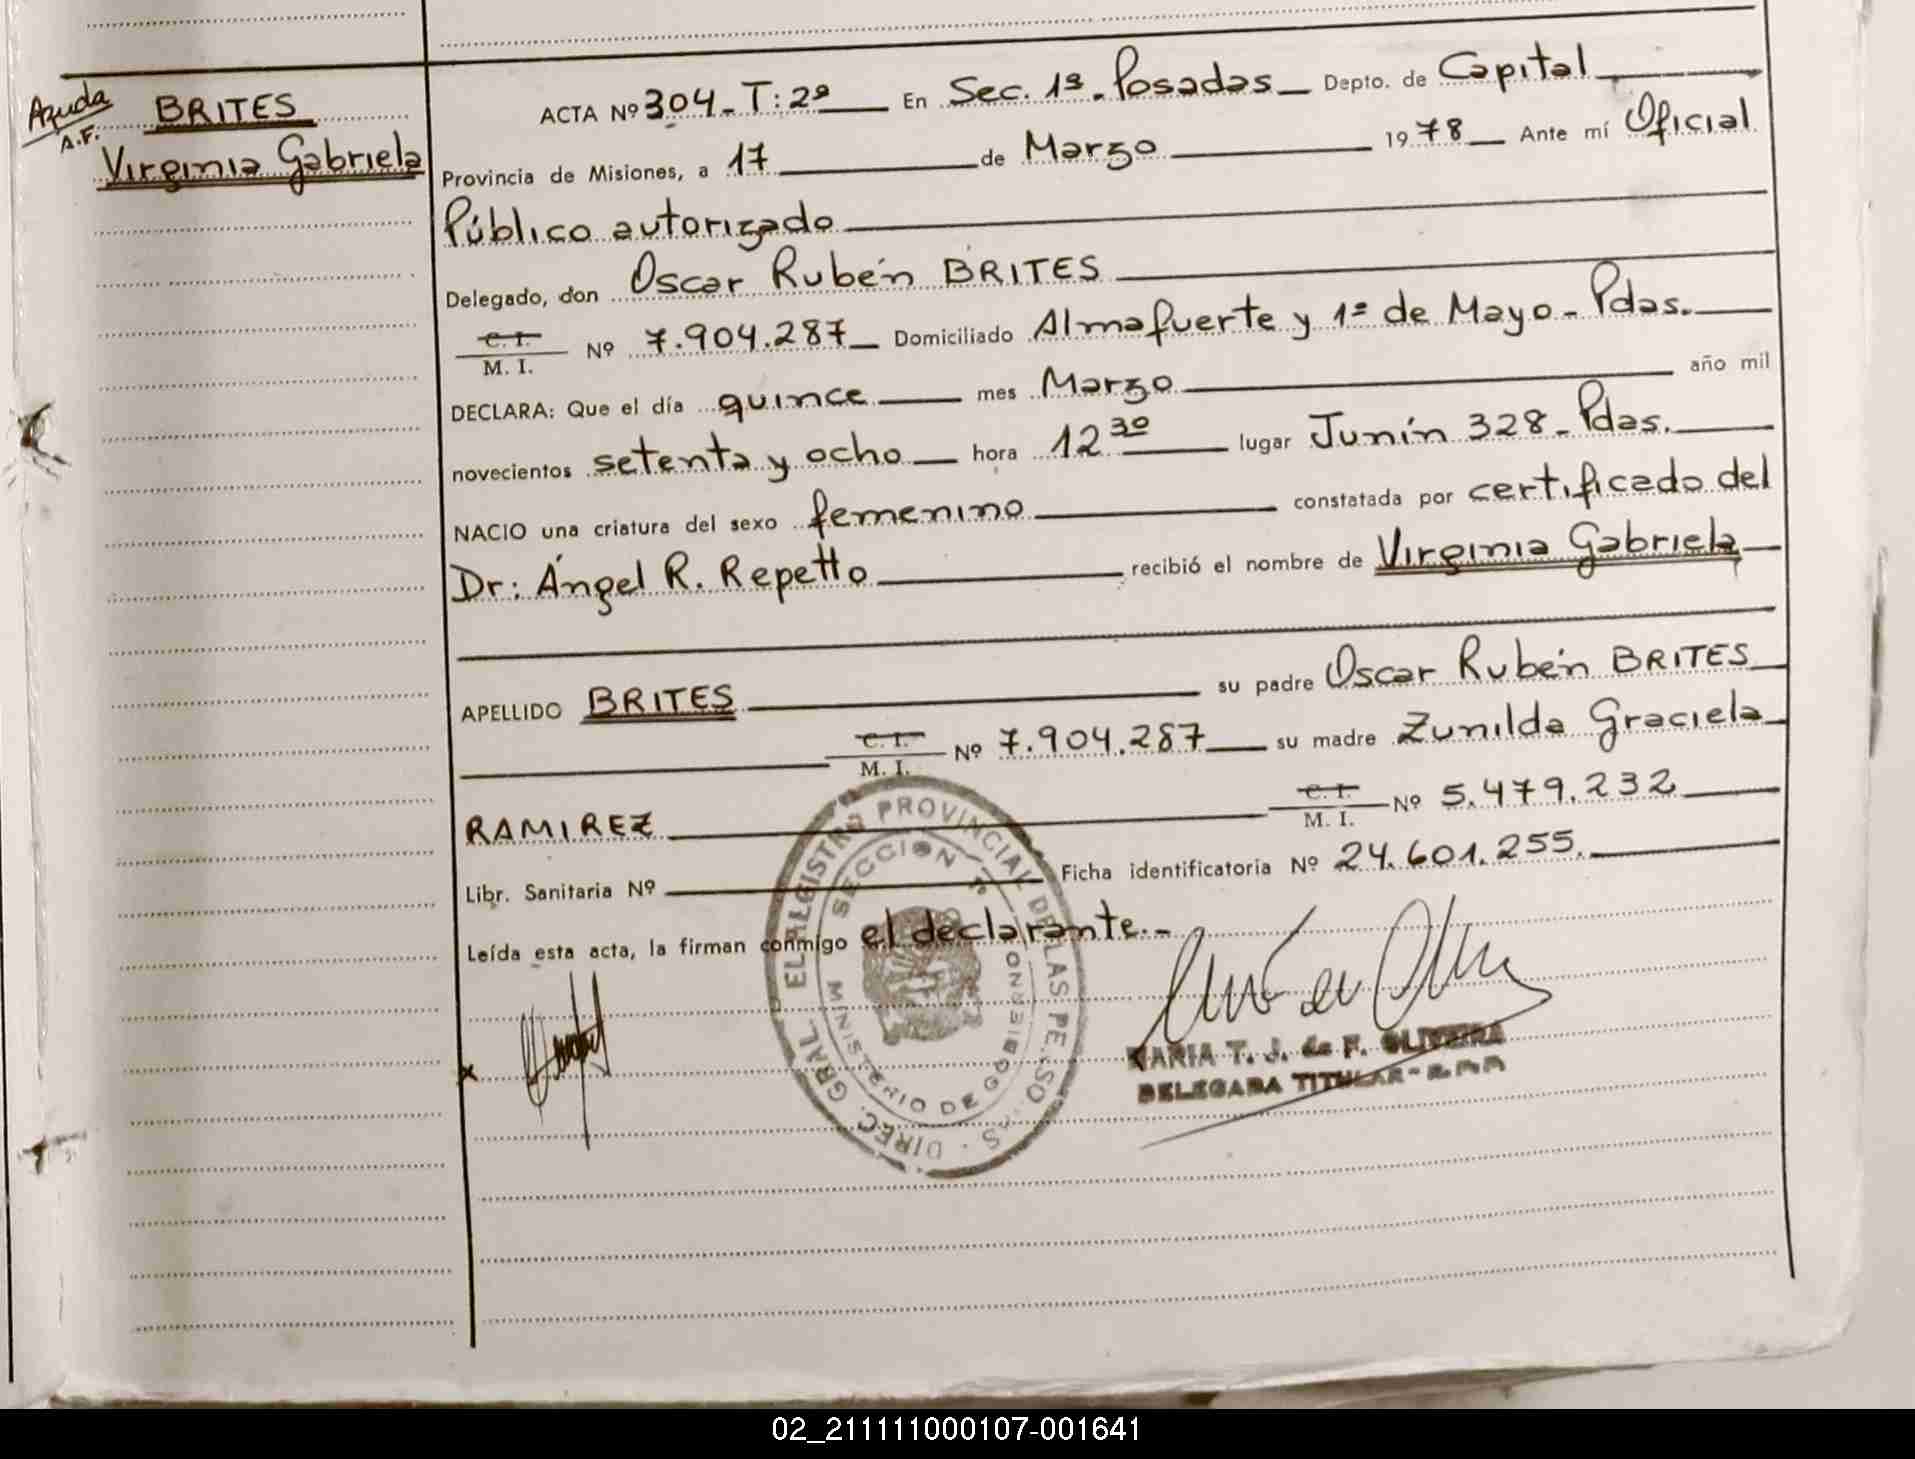 Ayuda
A.F.
BRITES
Virginia Gabriela
ACTA Nº 304-T:2º En Sec. 1ª-Posadas Depto. de Capital
Provincia de Misiones, a 17 de Marzo 1978 Ante mí Oficial
Público autorizado
Delegado, don Oscar Rubén BRITES
C.I.
M. I. Nº 7.904.287 Domiciliado Almafuerte y 1º de Mayo - Pdas.
DECLARA: Que el día quince mes Marzo año mil
novecientos setenta y ocho hora 12 30 lugar Junín 328 - Pdas.
NACIO una criatura del sexo femenino constatada por certificado del
Dr: Ángel R. Repetto recibió el nombre de Virginia Gabriela
APELLIDO BRITES su padre Oscar Rubén BRITES
C.I.
M. I. Nº 7.904.287 su madre Zunilda Graciela
RAMIREZ C.I.
M. I. Nº 5.479.232
Libr. Sanitaria Nº Ficha identificatoria Nº 24.601.255.
Leída esta acta, la firman conmigo el declarante.-
DIREC. GRAL. REGISTRO PROVINCIAL DE LAS PERSONAS
SECCION 1ª
MINISTERIO DE GOBIERNO
MARIA T. J. de F. OLIVEIRA
DELEGADA TITULAR
02_211111000107-001641